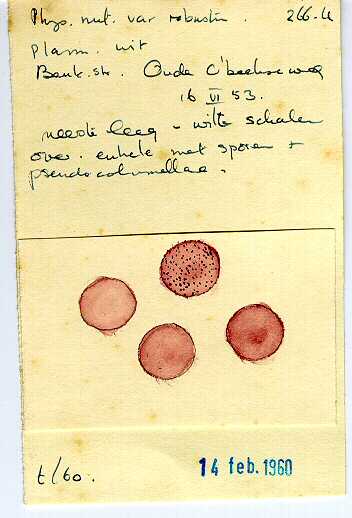 Phys. nut. var robusta. 266.U
Plasm. uit
Beuk. str. Oude C'beekse weg
16 VI 53.
meeste leeg - witte schalen
over. enkele met sporen +
pseudocolumellae.
t/60.
14 feb. 1960